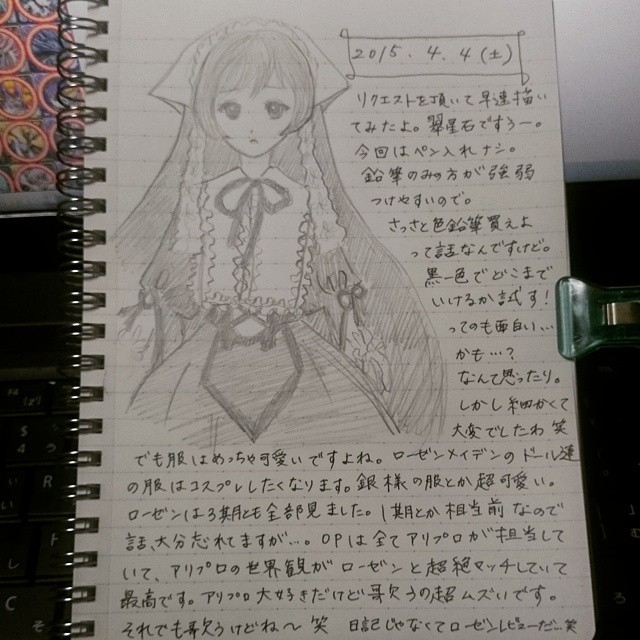 2015. 4. 4 (土)
リクエストを頂いて早速描い
てみたよ。翠星石ですぅー。
今回はペン入れナシ。
鉛筆のみの方が強弱
つけやすいので。
さっさと色鉛筆買えよ
って話なんですけど。
黒一色でどこまで
いけるか試す!
ってのも面白い…
かも…?
なんて思ったり。
しかし細かくて
大変でしたわ 笑
でも服はめっちゃ可愛いですよね。ローゼンメイデンのドール達
の服はコスプレしたくなります。銀様の服とか超可愛い。
ローゼンは3期とも全部見ました。1期とか相当前なので
話、大分忘れてますが…。OPは全てアリプロが担当して
いて、アリプロの世界観がローゼンと超絶マッチしていて
最高です。アリプロ大好きだけど歌うの超ムズいです。
それでも歌うけどね〜 笑 日記じゃなくてローゼンレビューだ…笑
R
C
そ
ろ